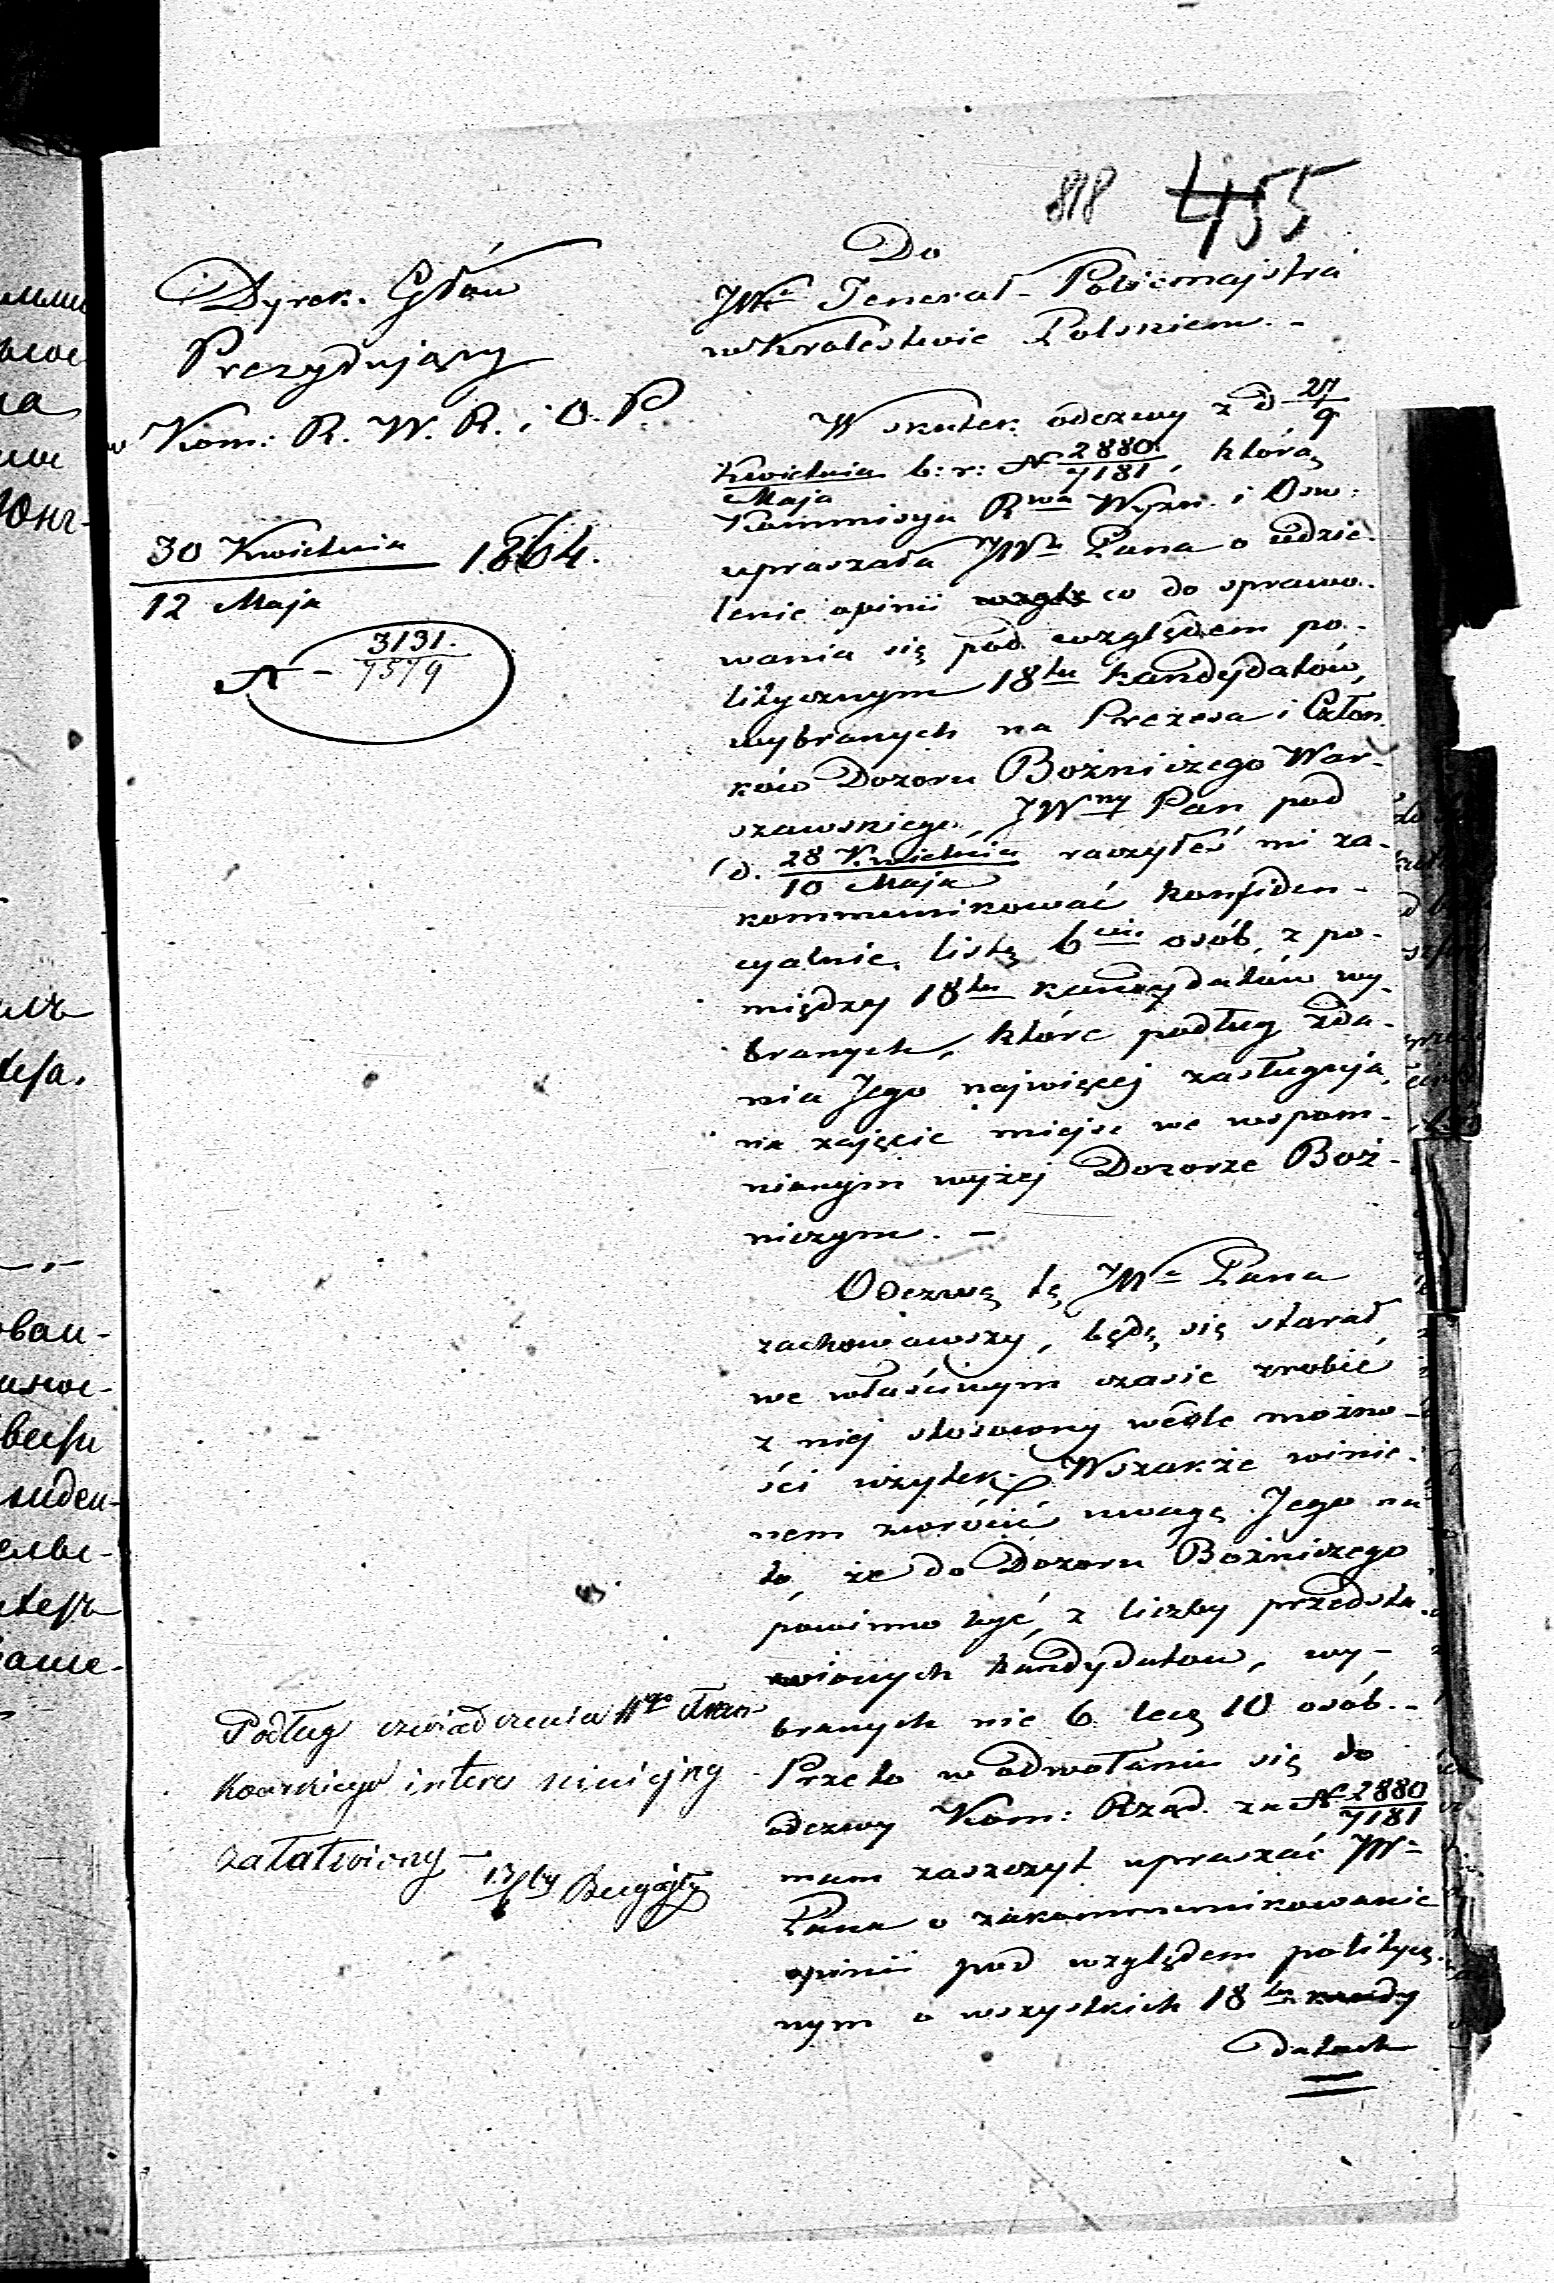 818 455
Dyrek. Głów
Prezydujący
w Kom: R. W. R. i O. P.
30 Kwietnia 1864.
12 Maja
N - 3131.
7579
Do
JWo Jenerał-Policmajstra
w Krolestwie Polskiem. -
W skutek odezwy z d 27/9
Kwietnia/Maja b: r: N 2880/7181, którą
Kommisya Rwa Wyzn. i Osw:
upraszała JWo Pana o udzie-
lenie opinii co do sprawo-
wania się pod względem po-
litycznym 18tu kandydatów,
wybranych na Prezesa i Człon
ków Dozoru Bożniczego War-
szawskiego. JWny Pan pod
d. 28 Kwietnia/10 Maja raczyłeś mi za-
kommunikować konfiden-
cyalnie, listę 6ciu osób, z po-
między 18tu kandydatów wy-
branych, które podług zda-
nia Jego najwięcej zasługują
na zajęcie miejsc we wspom-
nianym wyżej Dozorze Boż-
niczym. -
Odezwę tę JWo Pana
zachowawszy, będę się starał
we właściwym czasie zrobić
z niej stosowny wedle możno-
ści użytek. Wszakże winie-
nem zwrócić uwagę Jego na
to, że do Dozoru Bożniczego
powinno być, z liczby przedsta-
wionych kandydatow, wy-
branych nie 6. lecz 10 osób. -
Przeto w odwołaniu się do
odezwy Kom: Rząd. za N 2880/7181
mam zaszczyt upraszać JWo
Pana o zakommunikowanie
opinii pod względem politycz-
nym o wszystkich 18tu kandy
datach
Podług
interes niniejszy
załatwiony -